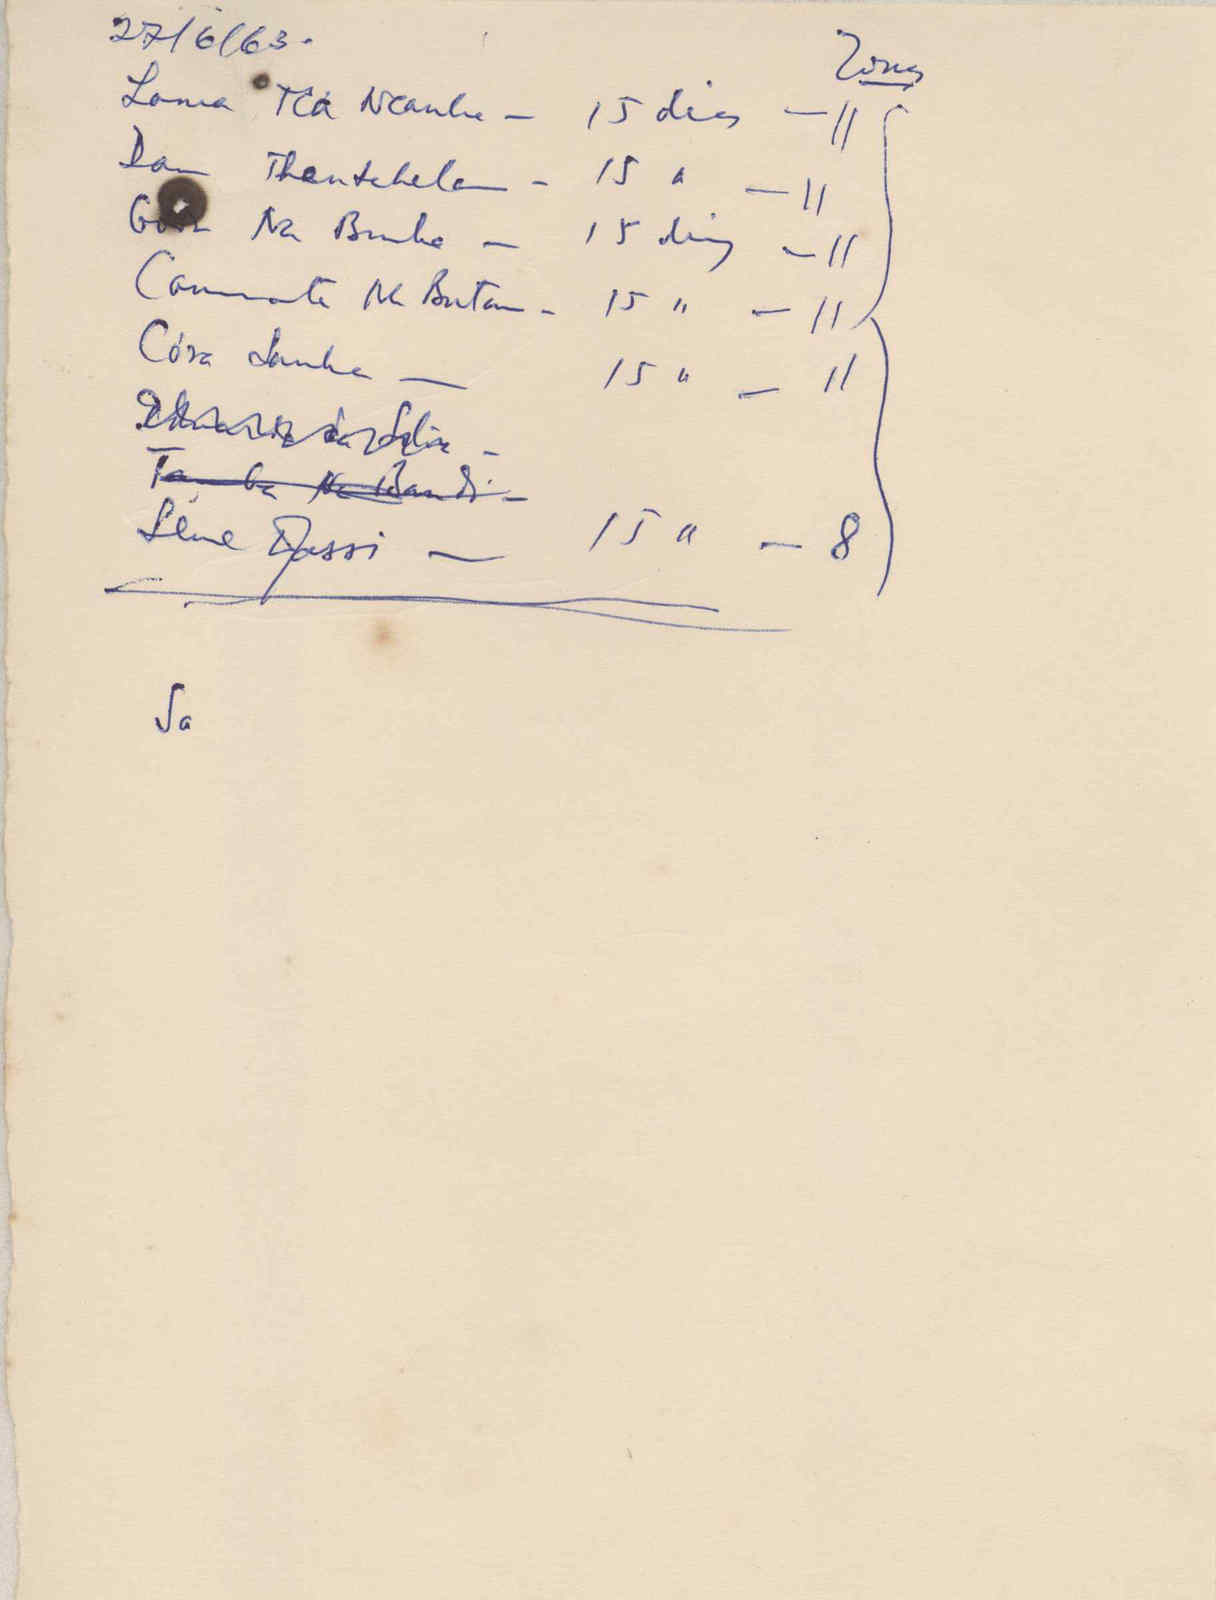 27/6/63.
Zonas
Lama Tcá Ncanha - 15 dias - 11
Dan Thantchelam - 15 " - 11
Na Bunha - 15 dias - 11
Na Butam - 15 " - 11
Córa Sanha - 15 " - 11
Tamba Na Bandi -
Sene Djassi - 15 " - 8
Sa